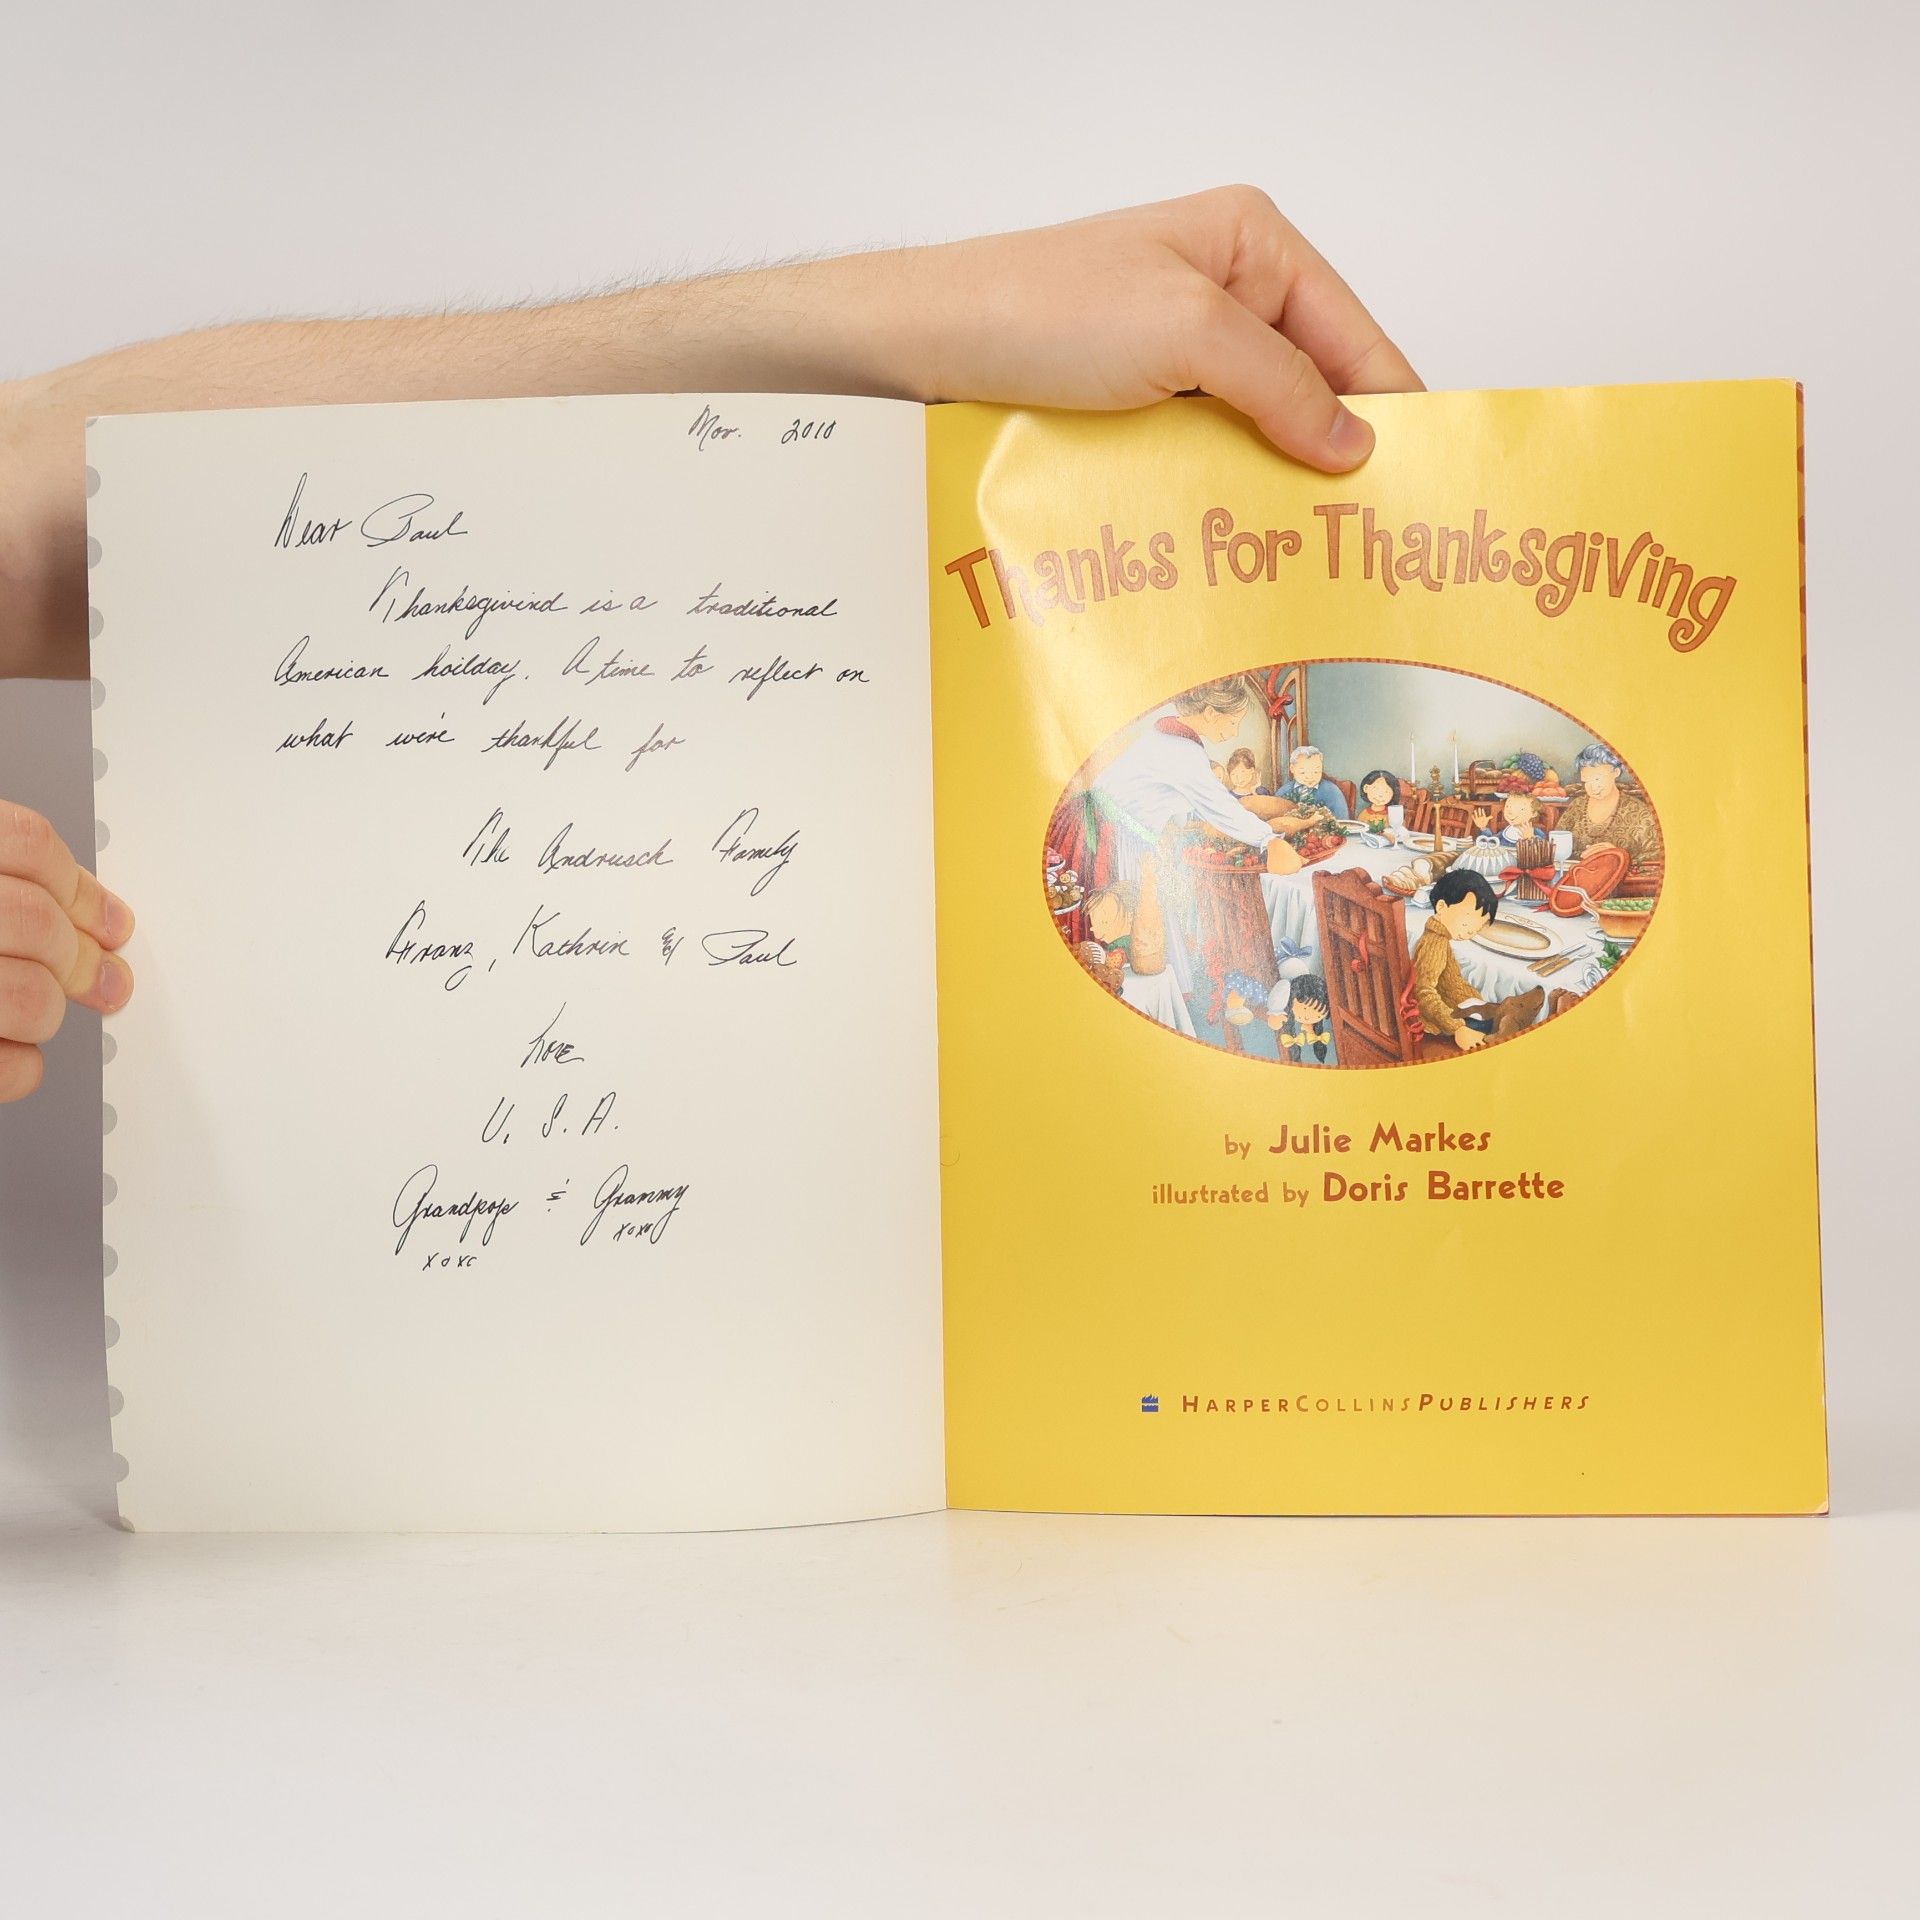 Nov. 2010
Dear Paul
Thanksgivind is a traditional
American hoilday. A time to reflect on
what we're thankful for
The Andrusch Family
Franz, Kathrin & Paul
Love
U. S. A.
Grandpop & Grammy
xoxo
xoxo
Thanks for Thanksgiving
by Julie Markes
illustrated by Doris Barrette
HARPERCOLLINSPUBLISHERS